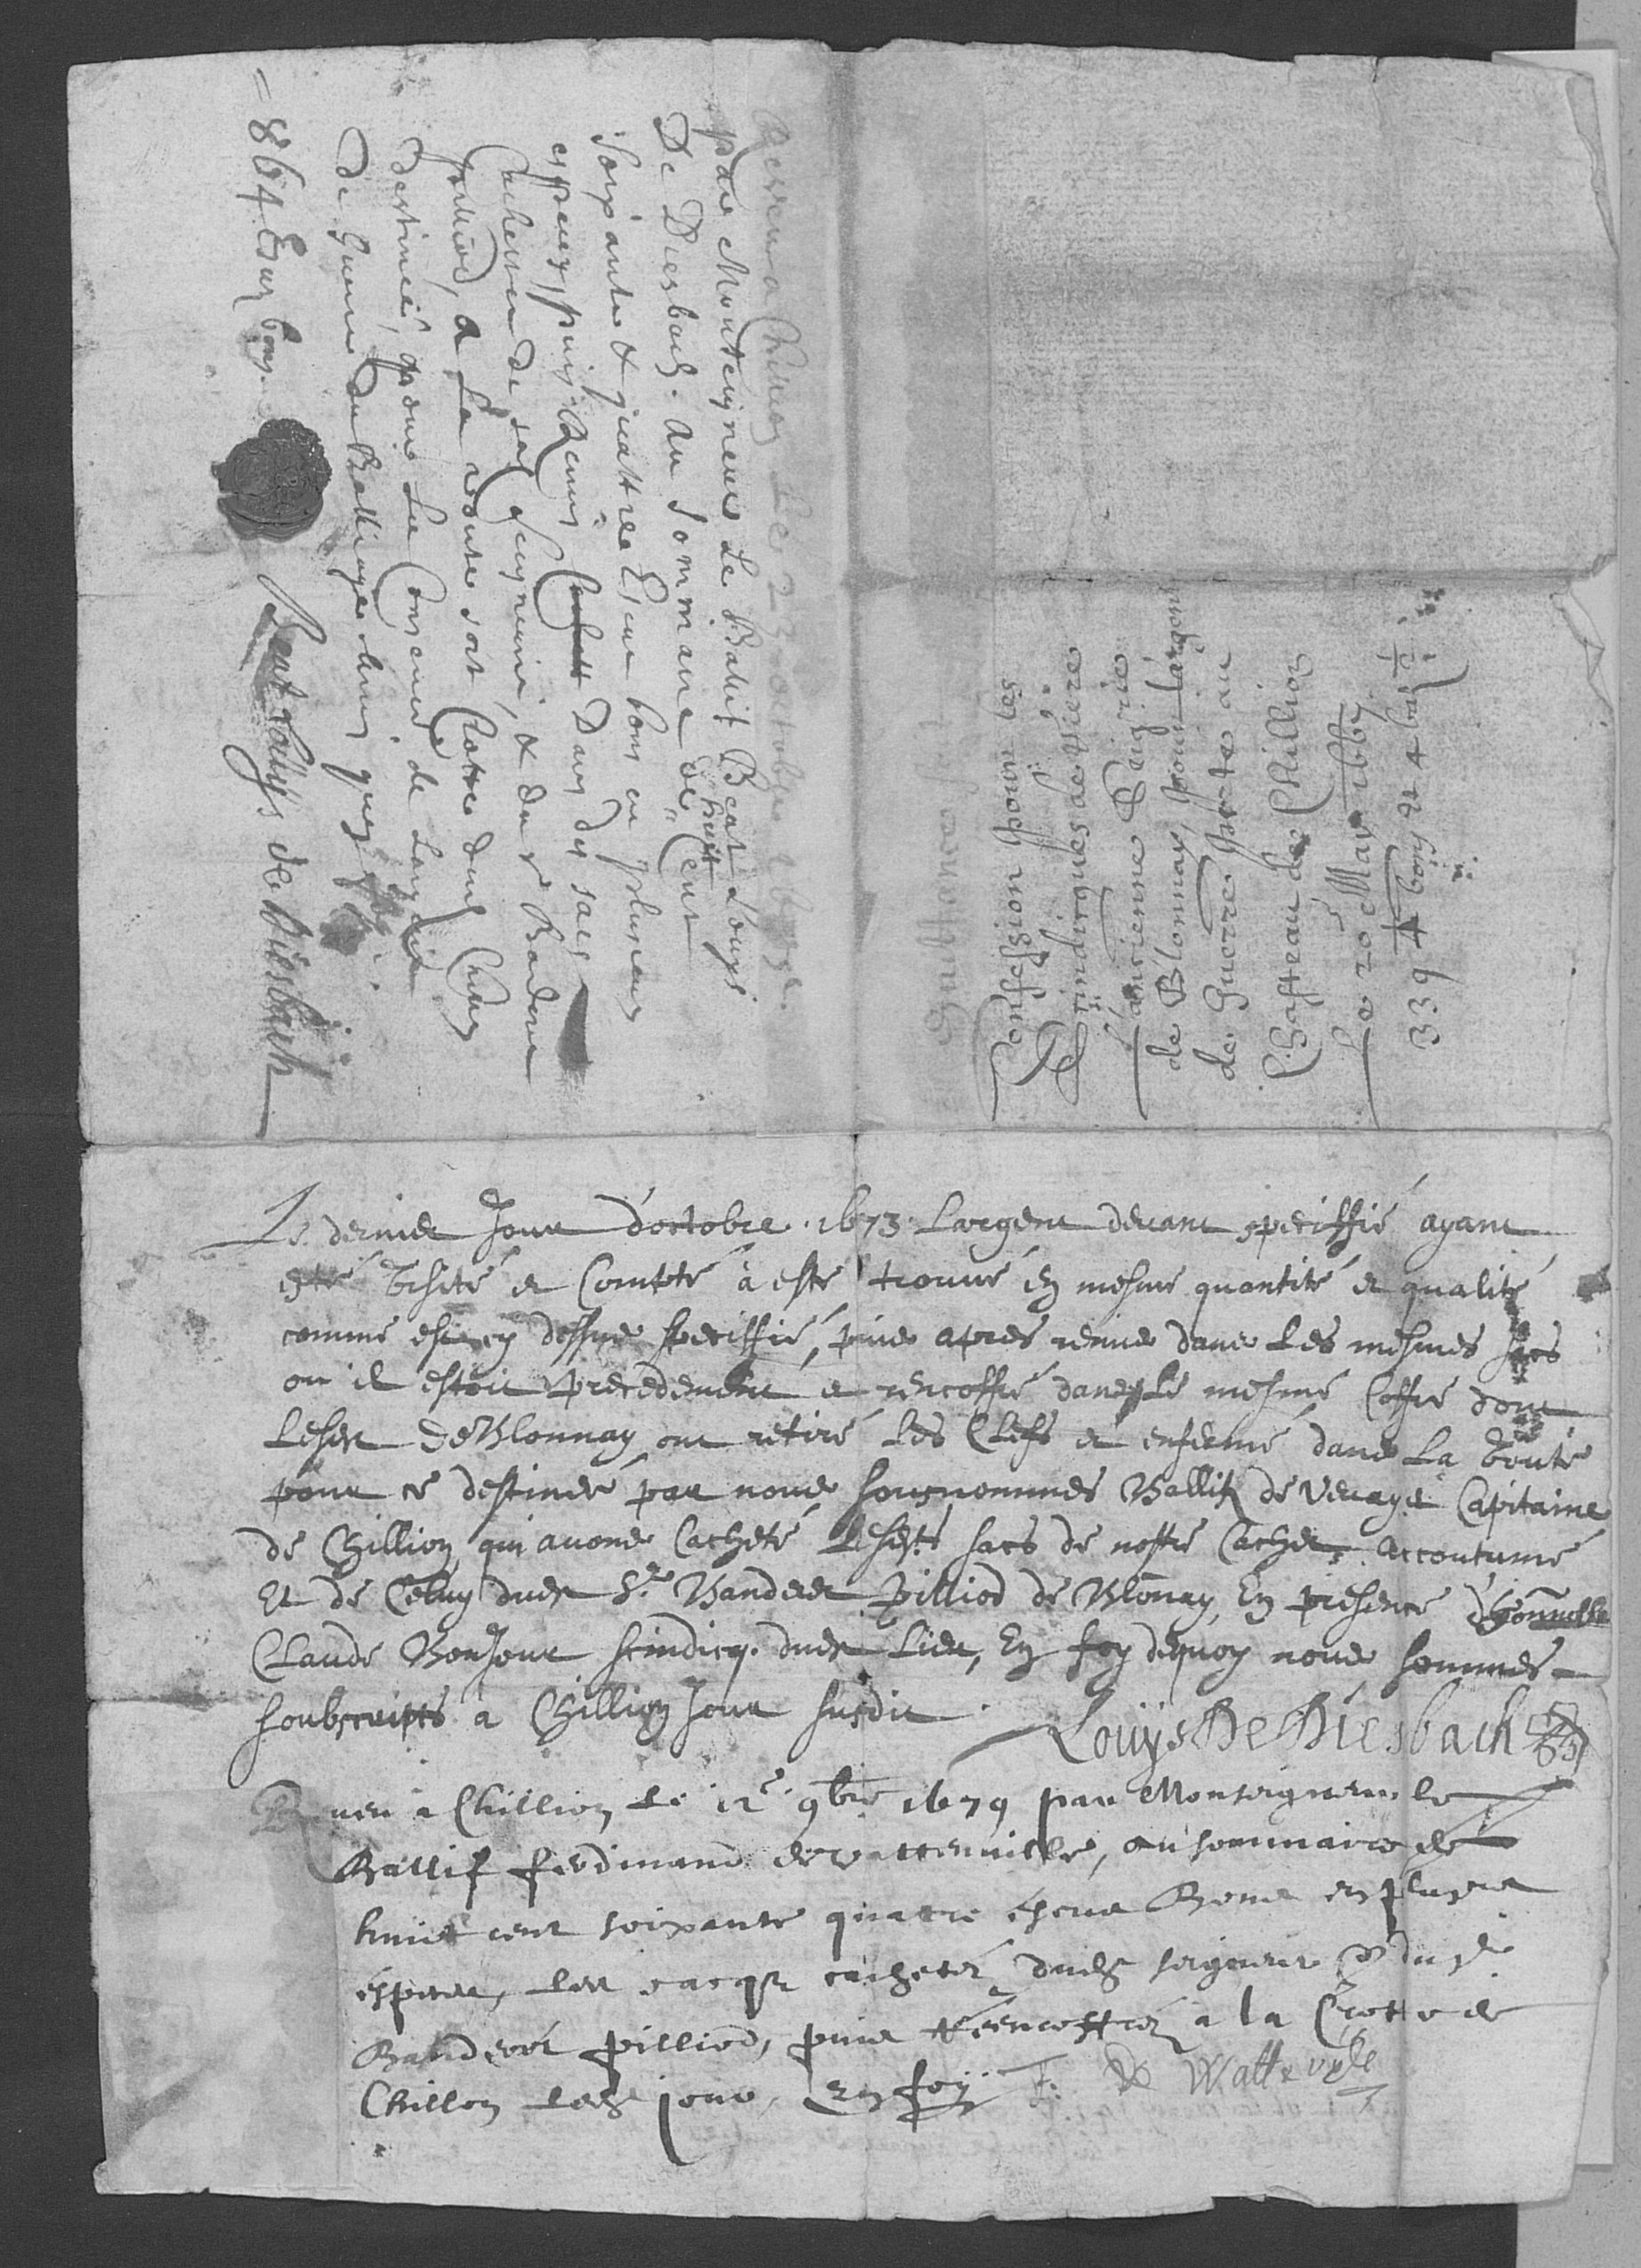 Reveu a Chillon Le 23 octobre
par Monseigneur Le Balif Beat Louys
De Diesbach. au Sommaire de huit Cent
Soixante & quattre Escus bons en plusieurs
especes, puis Remis Dans des sacs
Cachetés de sond Seigneurie, & du Sr Banderet
Pilliod, a La voute soit Crotte dud Chillon
destinée, pour La Conserve de Largent
de Guerre du Balliage
= 864 Escus bons.
Beat Louys de Diesbach
Quittance
Confession pour les
Scindicques de
l'ancienne Seigrie
de Blonnay, pour l'argent
de Guerre porté au
Chasteau de Chillion
Le 20e May 1667
339
Le dernier Jour d'octobre 1673 Largent devant speciffié ayant
esté visité et Compté à esté trouvé en mesme quantité et qualité
comme est cy dessus speciffié, puis apres remis dans les mesmes sacs
ou il estoit precedement et rencoffré dans le mesme Coffre dont
Lesdt de Blonnay ont retiré les Clefs et enfermé dans La voute
pour ce destinée par nous sousnommés Ballif de Vevay et Capitaine
de Chillion qui avons Cacheté Lesdts sacs de nostre Cachet accoutumé
Et de Celuy dudt Sr Banderet Pilliod de Blonay, En presence d'honneste
Claude Bonjour scindicq. dudt Lieu, En foy dequoy nous sommes
soubscripts à Chillion Jour susdit
Louys De Diesbach
Reveu a Chillion Le 12e 9bre 1679 par Monseigneur le
Ballif ferdinand de Watteville, au sommaire de
huict cent soixante quatre escus Bons en plusieurs
especes, les sacqs cachetés dudt seigneur & du Sr
Banderet Pilliod, puis réencoffrez a la Crotte de
Chillon ledt jour, En foy F. De Wattevile